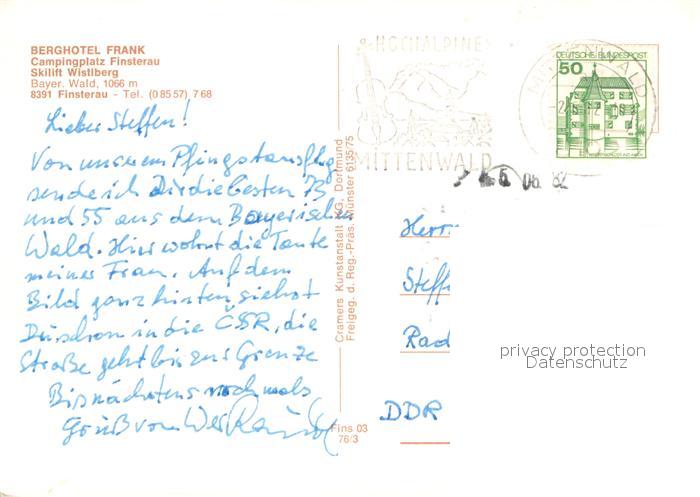 BERGHOTEL FRANK
Campingplatz Finsterau
Skilift Wistlberg
Bayer. Wald, 1066 m
8391 Finsterau - Tel. (0 85 57) 7 68
Lieber Steffen!
Von unserem Pfingstausflug
sende ich Dir die besten 73
und 55 aus dem Bayerischen
Wald. Hier wohnt die Tante
meiner Frau. Auf dem
Bild ganz hinten, siehst
Du schon in die ČSR, die
Straße geht bis zur Grenze
Bis nächstens nochmals
Gruß von
Cramers Kunstanstalt KG, Dortmund
Freigeg. d. Reg.-Präs. Münster 6135/75
Fins 03
76/3
HOCHALPINES
MITTENWALD
MITTENWALD
DEUTSCHE BUNDESPOST
50
5. 06. 82
Herr
Steff
Rad
DDR
privacy protection
Datenschutz